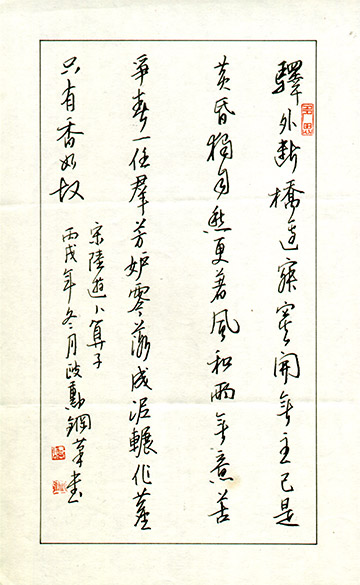 驛外斷橋邊寂寞開無主已是
黃昏獨自愁更著風和雨無意苦
爭春一任羣芳妒零落成泥輾作塵
只有香如故
宋陸遊卜算子
丙戌年冬月政勳鋼筆書